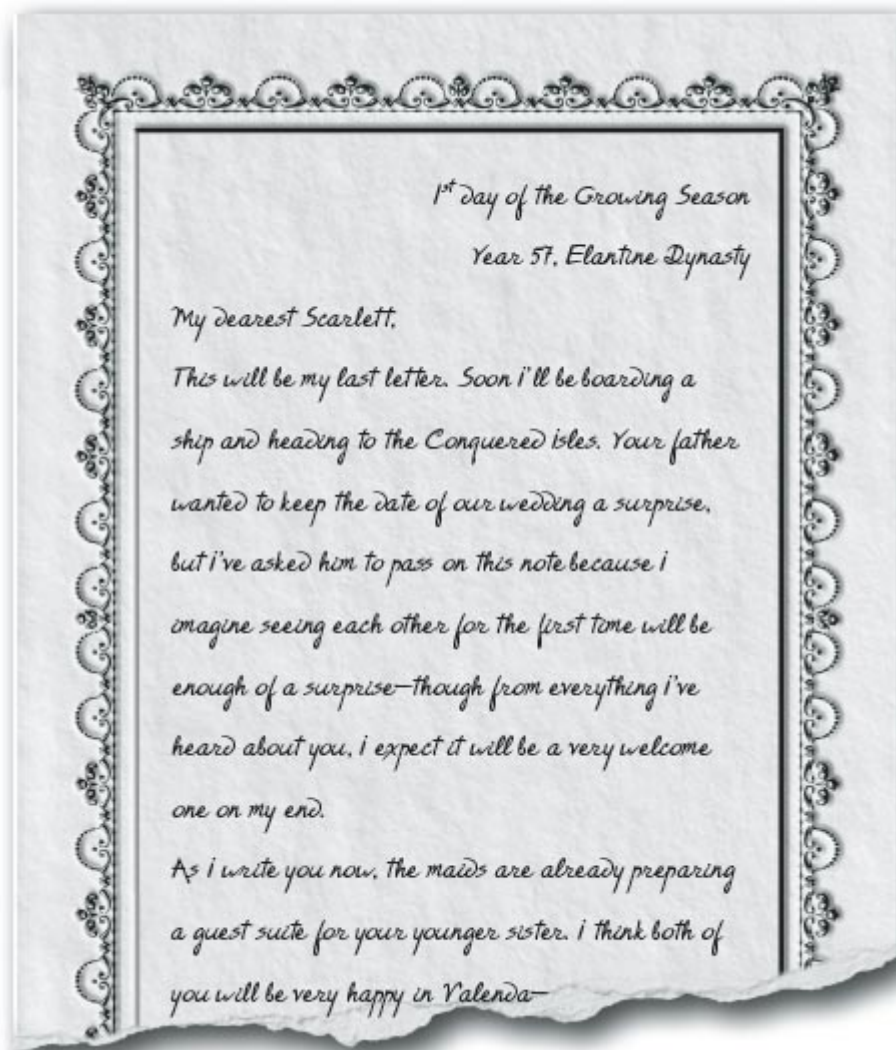 1st day of the Growing Season
Year 57, Elantine Dynasty
My dearest Scarlett,
This will be my last letter. Soon i'll be boarding a
ship and heading to the Conquered isles. Your father
wanted to keep the date of our wedding a surprise,
but i've asked him to pass on this note because i
imagine seeing each other for the first time will be
enough of a surprise—though from everything i've
heard about you, i expect it will be a very welcome
one on my end.
As i write you now, the maids are already preparing
a guest suite for your younger sister. i think both of
you will be very happy in Valenda—